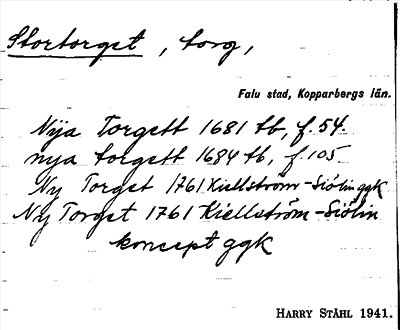 Stortorget, torg,
Falu stad, Kopparbergs län.
Nyia Torgett 1681 tb, f. 54.
nya torgett 1684 tb, f. 105.
Ny Torget 1761 Kiellström-Siölin ggk
Ny Torget 1761 Kiellström-Siölin
koncept ggk
HARRY STÅHL 1941.